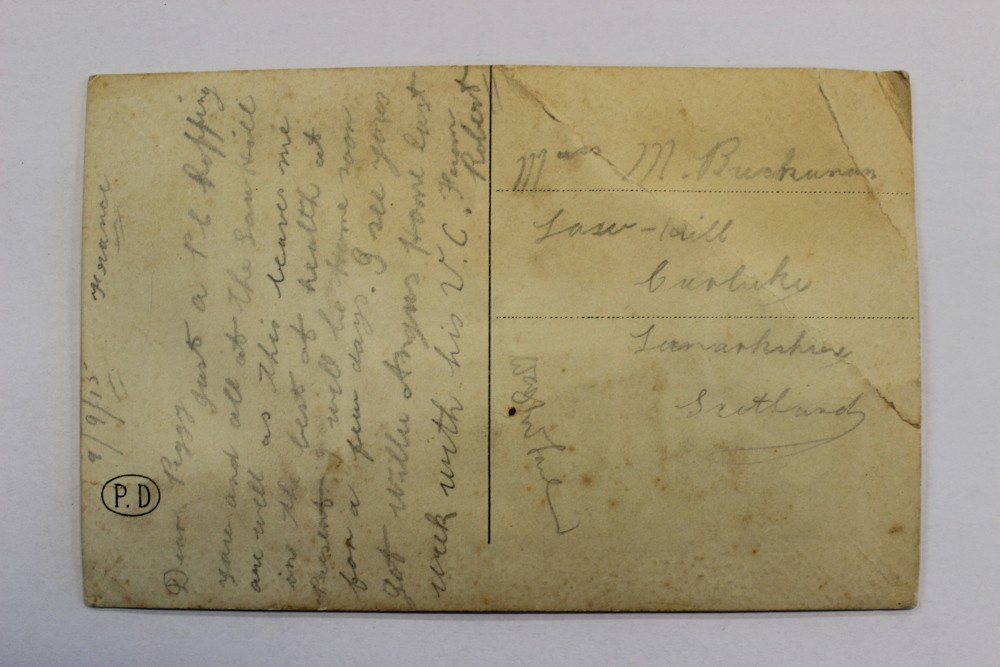 9/9/15 France
Dear Peggy
just a P C hopping
you are and all at the Law Hill
are well as this leaves me
in the best of health at
present I will be home soon
for a few days. I see yous
got Willie Angus home last
week with his V.C. From
Robert
P.D
Miss M. Buchanan
Law-hill
Carluke
Lanarkshire
Scotland